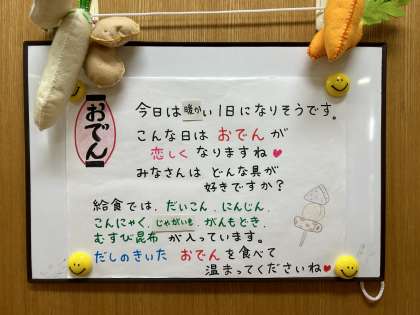 おでん
今日は暖かい1日になりそうです。
こんな日は おでん が
恋しく なりますね♥
みなさんは どんな具が
好きですか？
給食では、だいこん、にんじん、
こんにゃく、じゃがいも、がんもどき、
むすび昆布 が入っています。
だしのきいた おでん を食べて
温まってくださいね♥